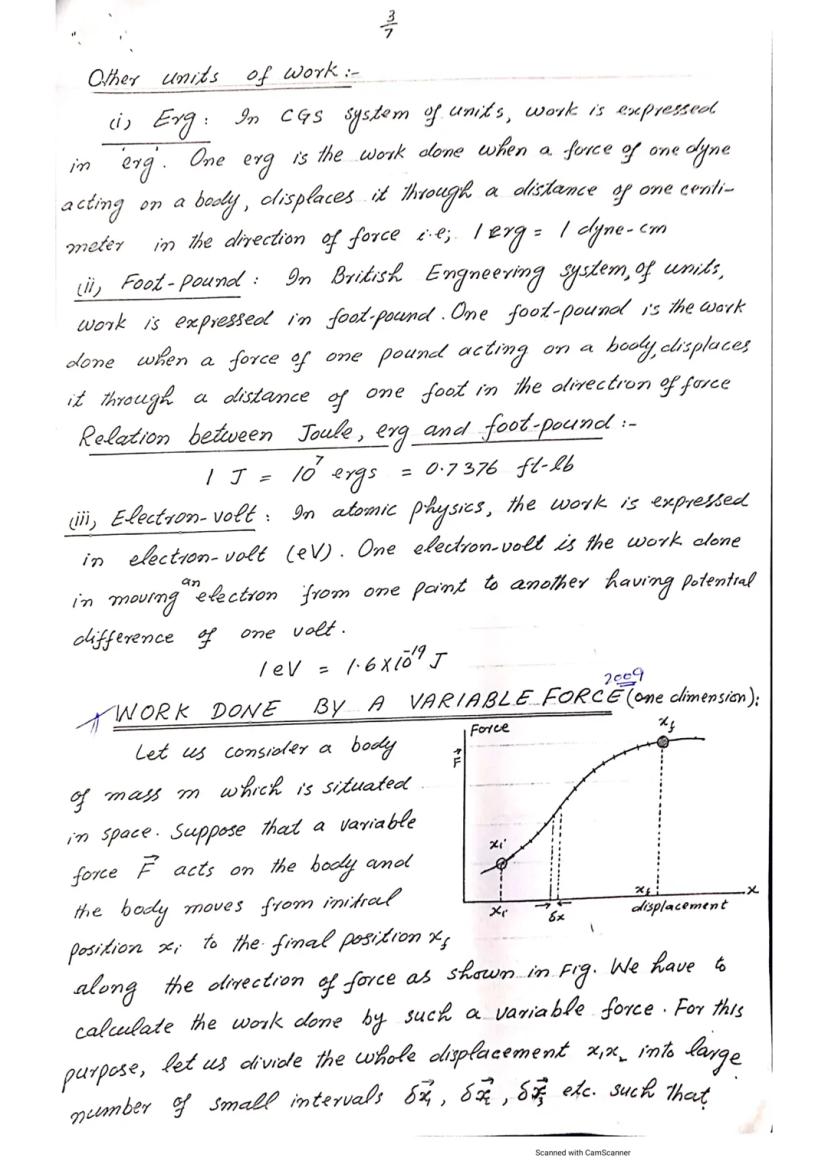 3/7
Other units of work :-
(i) Erg : In CGS system of units, work is expressed
in 'erg'. One erg is the work done when a force of one dyne
acting on a body, displaces it through a distance of one centi-
meter in the direction of force i.e; 1 erg = 1 dyne-cm
(ii) Foot-pound : In British Engneering system, of units,
work is expressed in foot-pound. One foot-pound is the work
done when a force of one pound acting on a body, displaces
it through a distance of one foot in the direction of force
Relation between Joule, erg and foot-pound :-
1 J = 10⁷ ergs = 0.7376 ft-lb
(iii) Electron-volt : In atomic physics, the work is expressed
in electron-volt (eV). One electron-volt is the work done
in moving an electron from one point to another having potential
difference of one volt.
1 eV = 1.6 x 10⁻¹⁹ J
2009
WORK DONE BY A VARIABLE FORCE (one dimension):
Let us consider a body
of mass m which is situated
in space. Suppose that a variable
force F⃗ acts on the body and
the body moves from initial
position xi to the final position xf
Force
F⃗
xf
xi
xi
δx
xf
displacement
x
along the direction of force as shown in Fig. We have to
calculate the work done by such a variable force. For this
purpose, let us divide the whole displacement x₁x₂ into large
number of small intervals δx⃗₁, δx⃗₂, δx⃗₃ etc. such that
Scanned with CamScanner